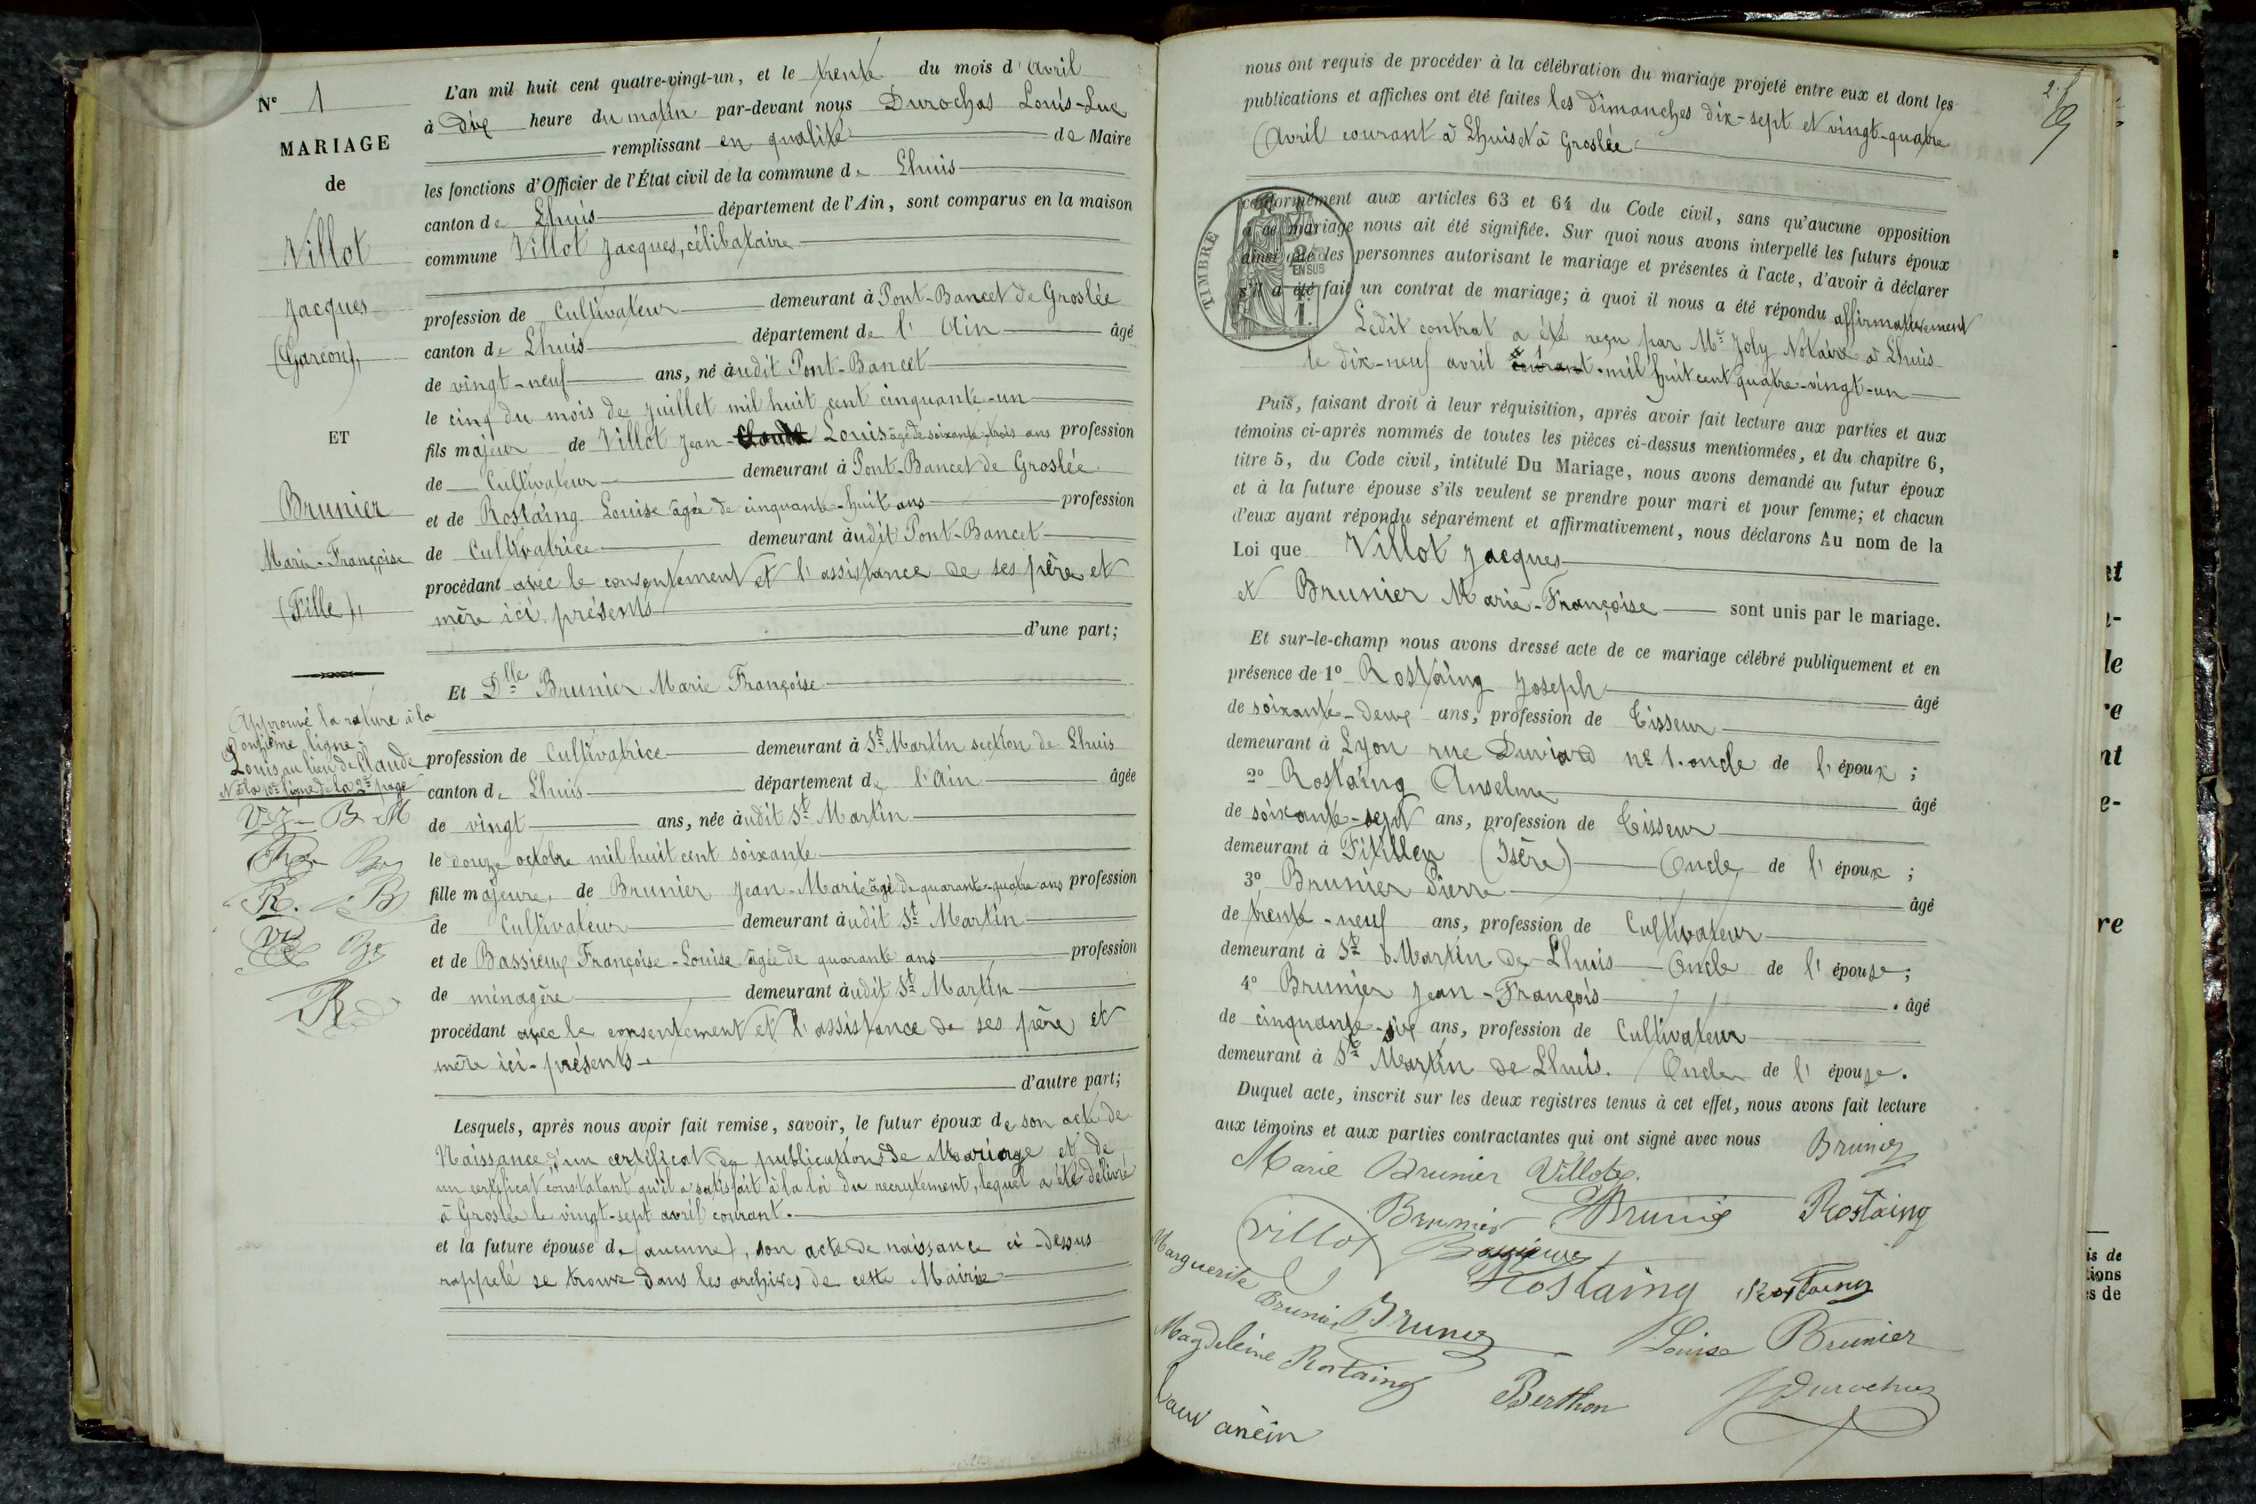 N° 1
MARIAGE
de
Villot
Jacques
(Garçon),
ET
Brunier
Marie-Françoise
(Fille),
Approuvé la rature à la
onzième ligne
Louis au lieu de Claude
V. J. B M
R. B
R
L'an mil huit cent quatre-vingt-un, et le trente du mois d'Avril
à dix heure du matin par-devant nous Durochas Louis-Luc
remplissant en qualité de Maire
les fonctions d'Officier de l'État civil de la commune de Lhuis
canton de Lhuis département de l'Ain, sont comparus en la maison
commune Villot Jacques, célibataire
profession de Cultivateur demeurant à Pont-Bancet de Groslée
canton de Lhuis département de l'Ain âgé
de vingt-neuf ans, né àudit Pont-Bancet
le cinq du mois de Juillet mil huit cent cinquante-un
fils majeur de Villot Jean-Claude Louis âgé de soixante-trois ans profession
de Cultivateur demeurant à Pont-Bancet de Groslée
et de Rostaing Louise âgée de cinquante-huit ans profession
de Cultivatrice demeurant àudit Pont-Bancet
procédant avec le consentement et l'assistance de ses père et
mère ici présents
d'une part;
Et Dlle Brunier Marie Françoise
profession de Cultivatrice demeurant à St Martin section de Lhuis
canton de Lhuis département de l'Ain âgée
de vingt ans, née àudit St Martin
le douze octobre mil huit cent soixante
fille majeure, de Brunier Jean-Marie âgé de quarante-quatre ans profession
de Cultivateur demeurant àudit St Martin
et de Bassieux Françoise-Louise âgée de quarante ans profession
de ménagère demeurant àudit St Martin
procédant avec le consentement et l'assistance de ses père et
mère ici-présents.
d'autre part;
Lesquels, après nous avoir fait remise, savoir, le futur époux de son acte de
Naissance, d'un certificat de publications de Mariage et de
un certificat constatant qu'il a satisfait à la loi du recrutement, lequel a été délivré
à Groslée le vingt-sept avril courant.
et la future épouse de (aucune), son acte de naissance ci-dessus
rappelé se trouve dans les archives de cette Mairie
2. f
nous ont requis de procéder à la célébration du mariage projeté entre eux et dont les
publications et affiches ont été faites les dimanches dix-sept et vingt-quatre
Avril courant à Lhuis et à Groslée
conformément aux articles 63 et 64 du Code civil, sans qu'aucune opposition
à ce mariage nous ait été signifiée. Sur quoi nous avons interpellé les futurs époux
ainsi que des personnes autorisant le mariage et présentes à l'acte, d'avoir à déclarer
s'il a été fait un contrat de mariage; à quoi il nous a été répondu affirmativement
TIMBRE
EN SUS
Ledit contrat a été reçu par Me Joly Notaire à Lhuis
le dix-neuf avril courant mil huit cent quatre-vingt-un
Puis, faisant droit à leur réquisition, après avoir fait lecture aux parties et aux
témoins ci-après nommés de toutes les pièces ci-dessus mentionnées, et du chapitre 6,
titre 5, du Code civil, intitulé Du Mariage, nous avons demandé au futur époux
et à la future épouse s'ils veulent se prendre pour mari et pour femme; et chacun
d'eux ayant répondu séparément et affirmativement, nous déclarons Au nom de la
Loi que Villot Jacques
et Brunier Marie-Françoise sont unis par le mariage.
Et sur-le-champ nous avons dressé acte de ce mariage célébré publiquement et en
présence de 1° Rostaing Joseph âgé
de soixante-deux ans, profession de Tisseur
demeurant à Lyon rue Duviard n° 1. oncle de l'époux;
2° Rostaing Anselme âgé
de soixante-sept ans, profession de Tisseur
demeurant à Fitilleu (Isère) Oncle de l'époux;
3° Brunier Pierre âgé
de trente-neuf ans, profession de Cultivateur
demeurant à St Martin de Lhuis Oncle de l'épouse;
4° Brunier Jean-François âgé
de cinquante-six ans, profession de Cultivateur
demeurant à St Martin de Lhuis. Oncle de l'épouse.
Duquel acte, inscrit sur les deux registres tenus à cet effet, nous avons fait lecture
aux témoins et aux parties contractantes qui ont signé avec nous
Brunier
Marie Brunier Villot
Brunier Brunier Rostaing
Villot Bassieux
Rostaing Rostaing
Marguerite Brunier Brunier
Louise Brunier
Magdeleine Rostaing
Berthon Durochas